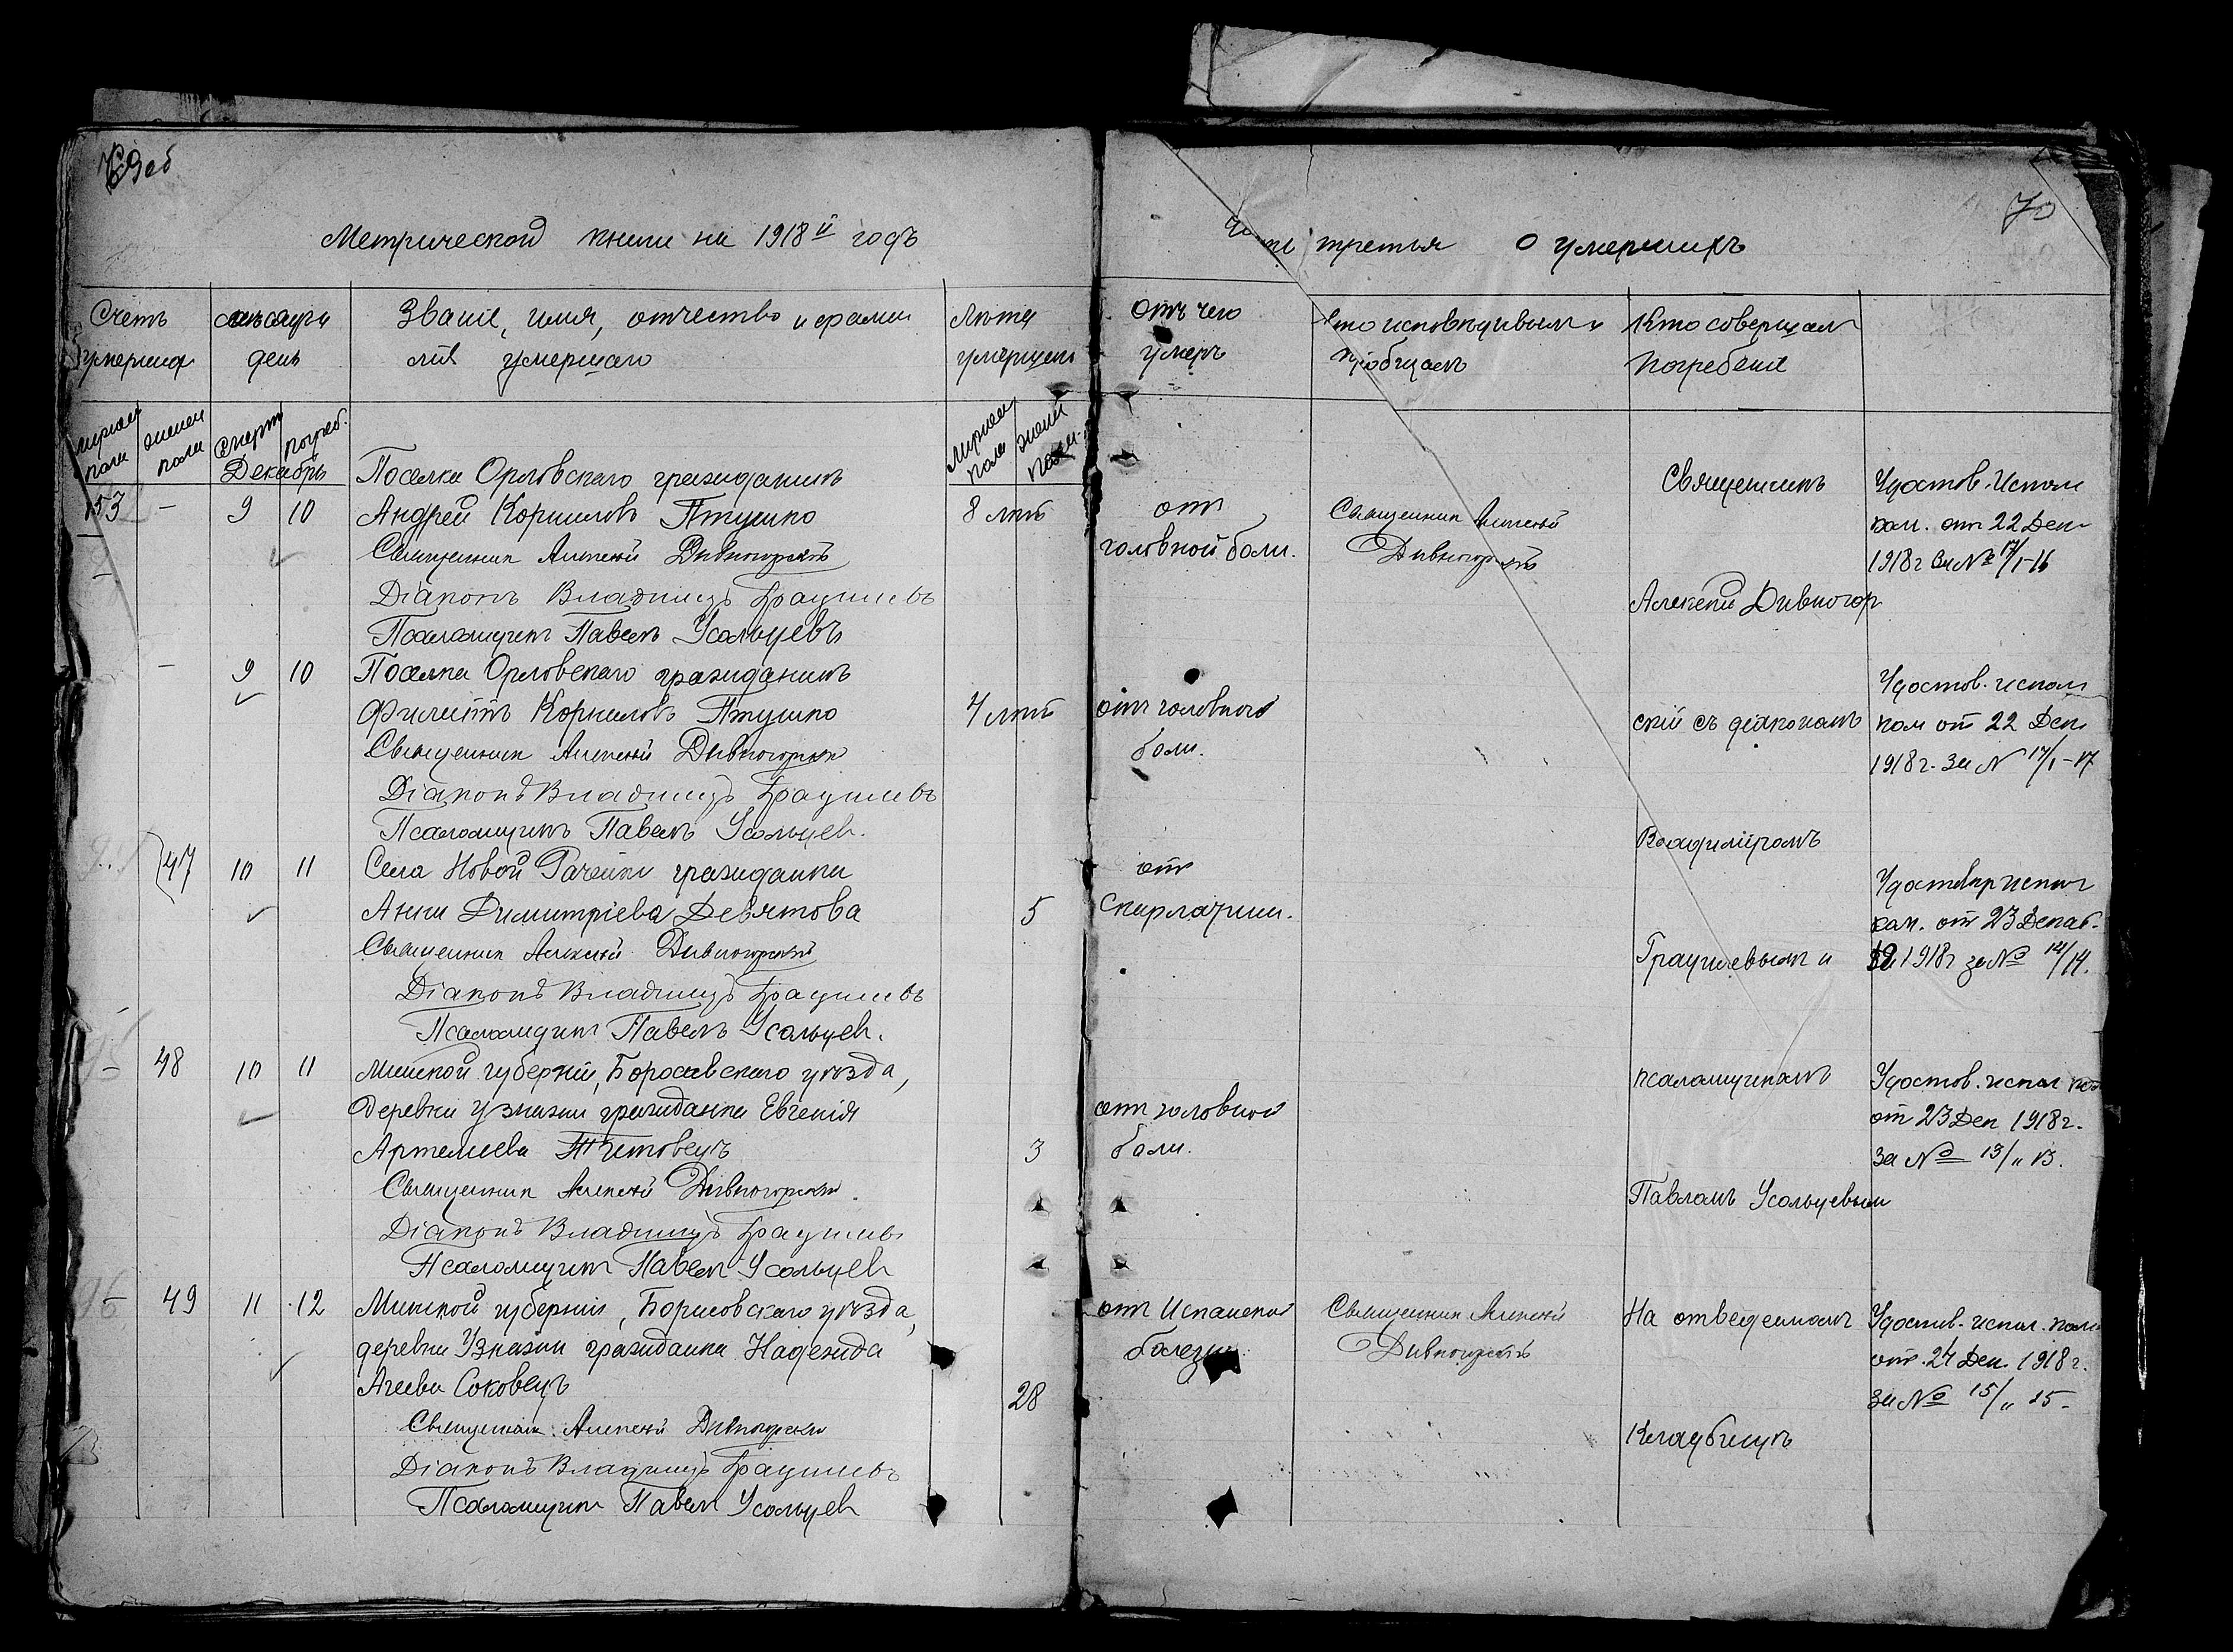 69об
Метрической книги на 1918й годъ
Счетъ умершихъ
день
Званіе, имя, отчество и фамилія умершаго
Лѣта умершаго
мужск. пола
женск. пола
Смерт.
погреб.
Декабрь
мужск. пола
женск. пола
53 - 9 10
Поселка Орловскаго гражданинъ
Андрей Корниловъ Птушко
8 лѣтъ
Священникъ Алексѣй Дивногорскій
Діаконъ Владиміръ Граушевъ
Псаломщикъ Павелъ Усольцевъ
- 9 10
Поселка Орловскаго гражданинъ
Корниловъ Птушко
4 лѣтъ
Священникъ Алексѣй Дивногорскій
Діаконъ Владиміръ Граушевъ
Псаломщикъ Павелъ Усольцев.
47 10 11
Села Новой Рачейки гражданка
Анна Димитріева Девятова
5
Священникъ Алексѣй Дивногорскій
Діаконъ Владиміръ Граушевъ
Псаломщикъ Павелъ Усольцев.
- 48 10 11
Минской губерніи, Борисовскаго уѣзда,
деревни Узнажи гражданка Евгенія
Артемиева Титовецъ
3
Священникъ Алексѣй Дивногорскій.
Діаконъ Владиміръ Граушевъ
Псаломщикъ Павелъ Усольцев
- 49 11 12
Минской губерніи, Борисовскаго уѣзда,
деревни Узнажи гражданка Надежда
Агеева Соковецъ
28
Священникъ Алексѣй Дивногорскій
Діаконъ Владиміръ Граушевъ
Псаломщикъ Павелъ Усольцев
70
Часть третья О умершихъ
Отъ чего умеръ
Кто исповѣдывалъ и пріобщалъ
Кто совершалъ погребеніе
отъ
головной боли.
Священникъ Алексѣй
Дивногорскій
Священникъ
Алексѣй Дивногор
Удостов. Исполкам. отъ 22 Дек.
1918г за № 17/1-16
отъ головной
боли.
скій съ діакономъ
Удостов. испол
ком отъ 22 Дек
1918г. за № 17/1-17
Владиміромъ
отъ
скарлатины.
Граушевымъ и
Удостовѣр испол
ком. отъ 23 Декаб.
1918г за № 14/14.
отъ головной
боли.
псаломщикомъ
Павломъ Усольцевым
Удостов. испол ком
отъ 23 Дек 1918г.
за № 13/" 13.
отъ Испанской
болезни
Священникъ Алексѣй
Дивногорскій
На отведенномъ
Кладбищѣ
Удостов. испол. ком
отъ 24 Дек. 1918г.
за № 15/" 15.